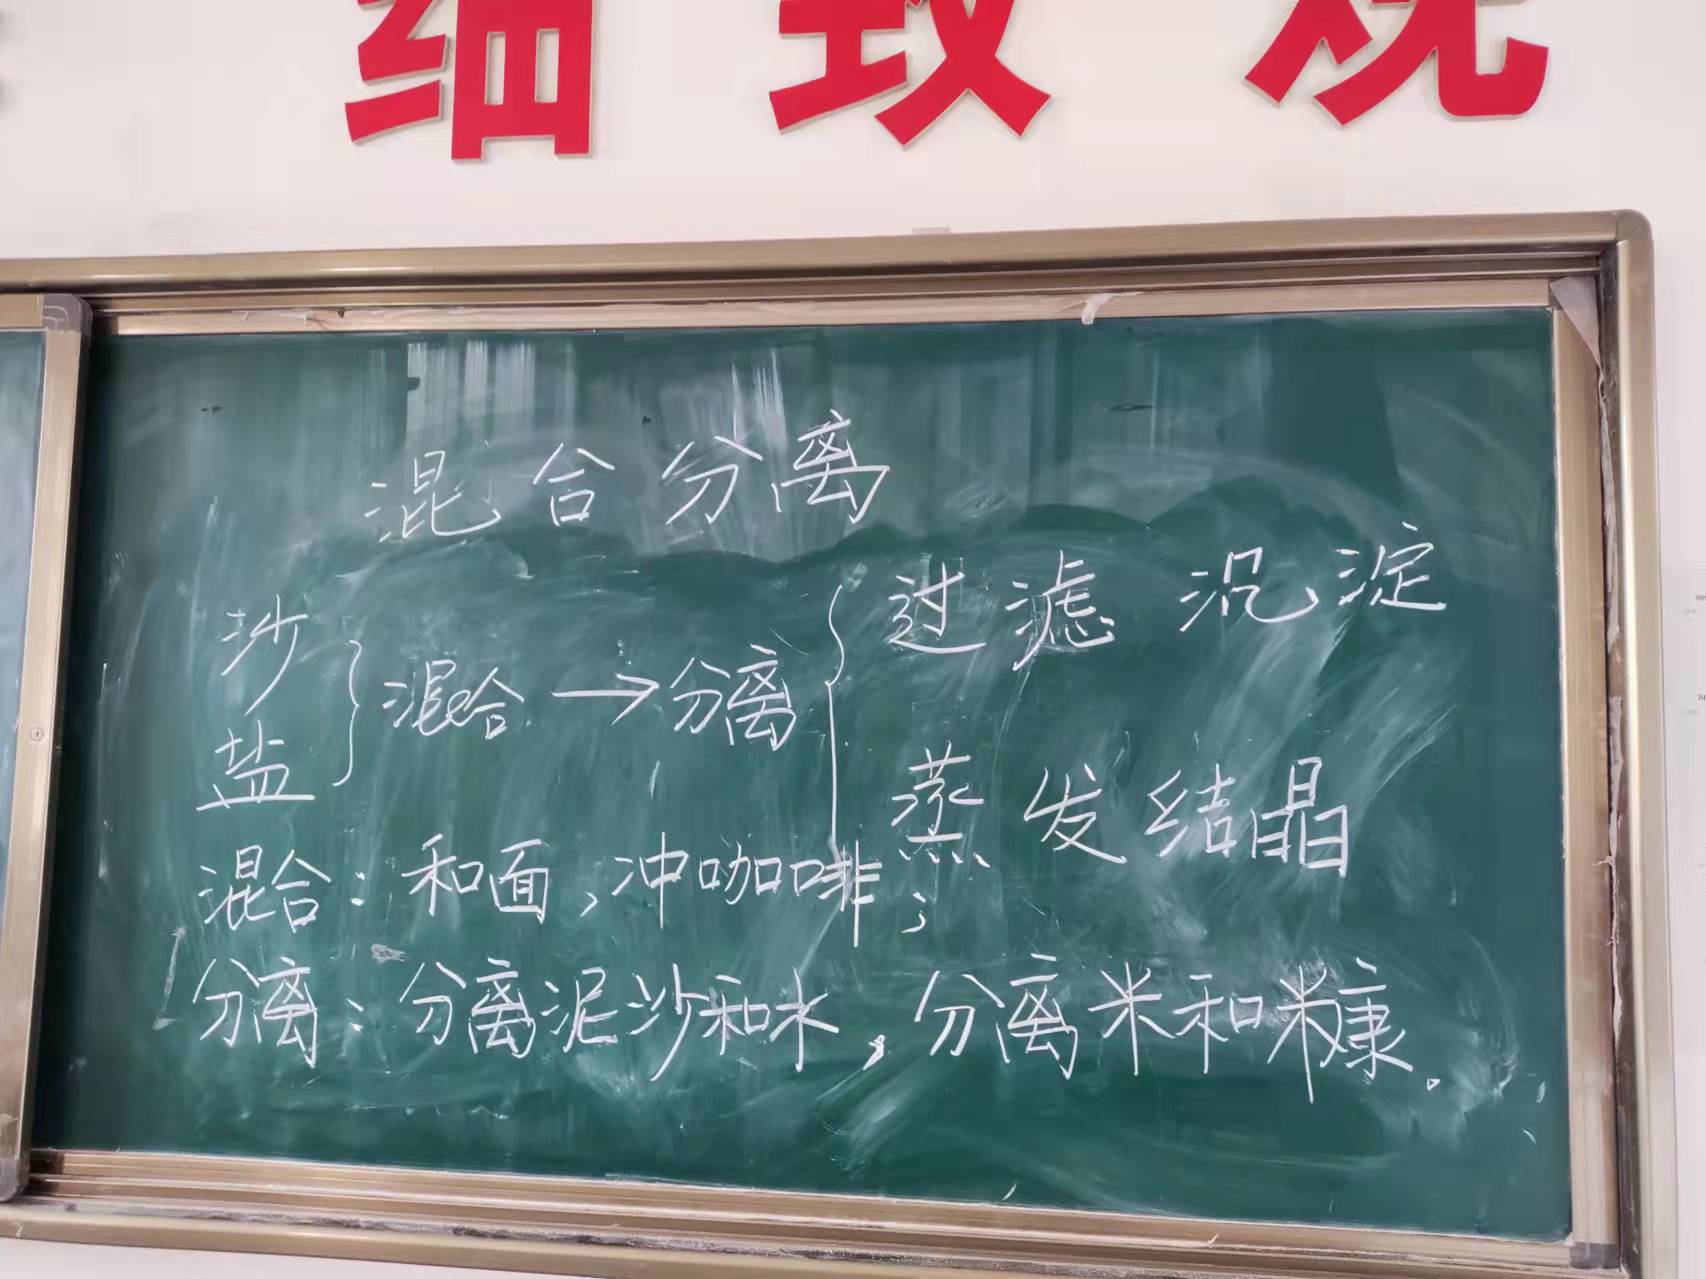 细致观
混合分离
沙
盐
} 混合 → 分离 {
过滤 沉淀
蒸发结晶
混合：和面，冲咖啡；
分离：分离泥沙和水，分离米和糠.